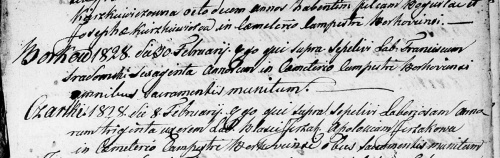 octodecim annos habentem filiam Bogusłai et
Josephæ in Cæmeterio Campestri Borkoviensi.
Borków 1828. die 20 Februarij. ego qui supra sepelivi Lab: Franciscum
Sradomski Sexaginta Annorum in Cæmeterio Campestri Borkoviensi
omnibus Sacramentis munitum.
Czartki 1828. die 8 Februarij. ego qui supra sepelivi Laboriosam anno
rum triginta uxorem Apoloniam
in Cæmeterio Campestri Borkoviensi Sacramentis munitam